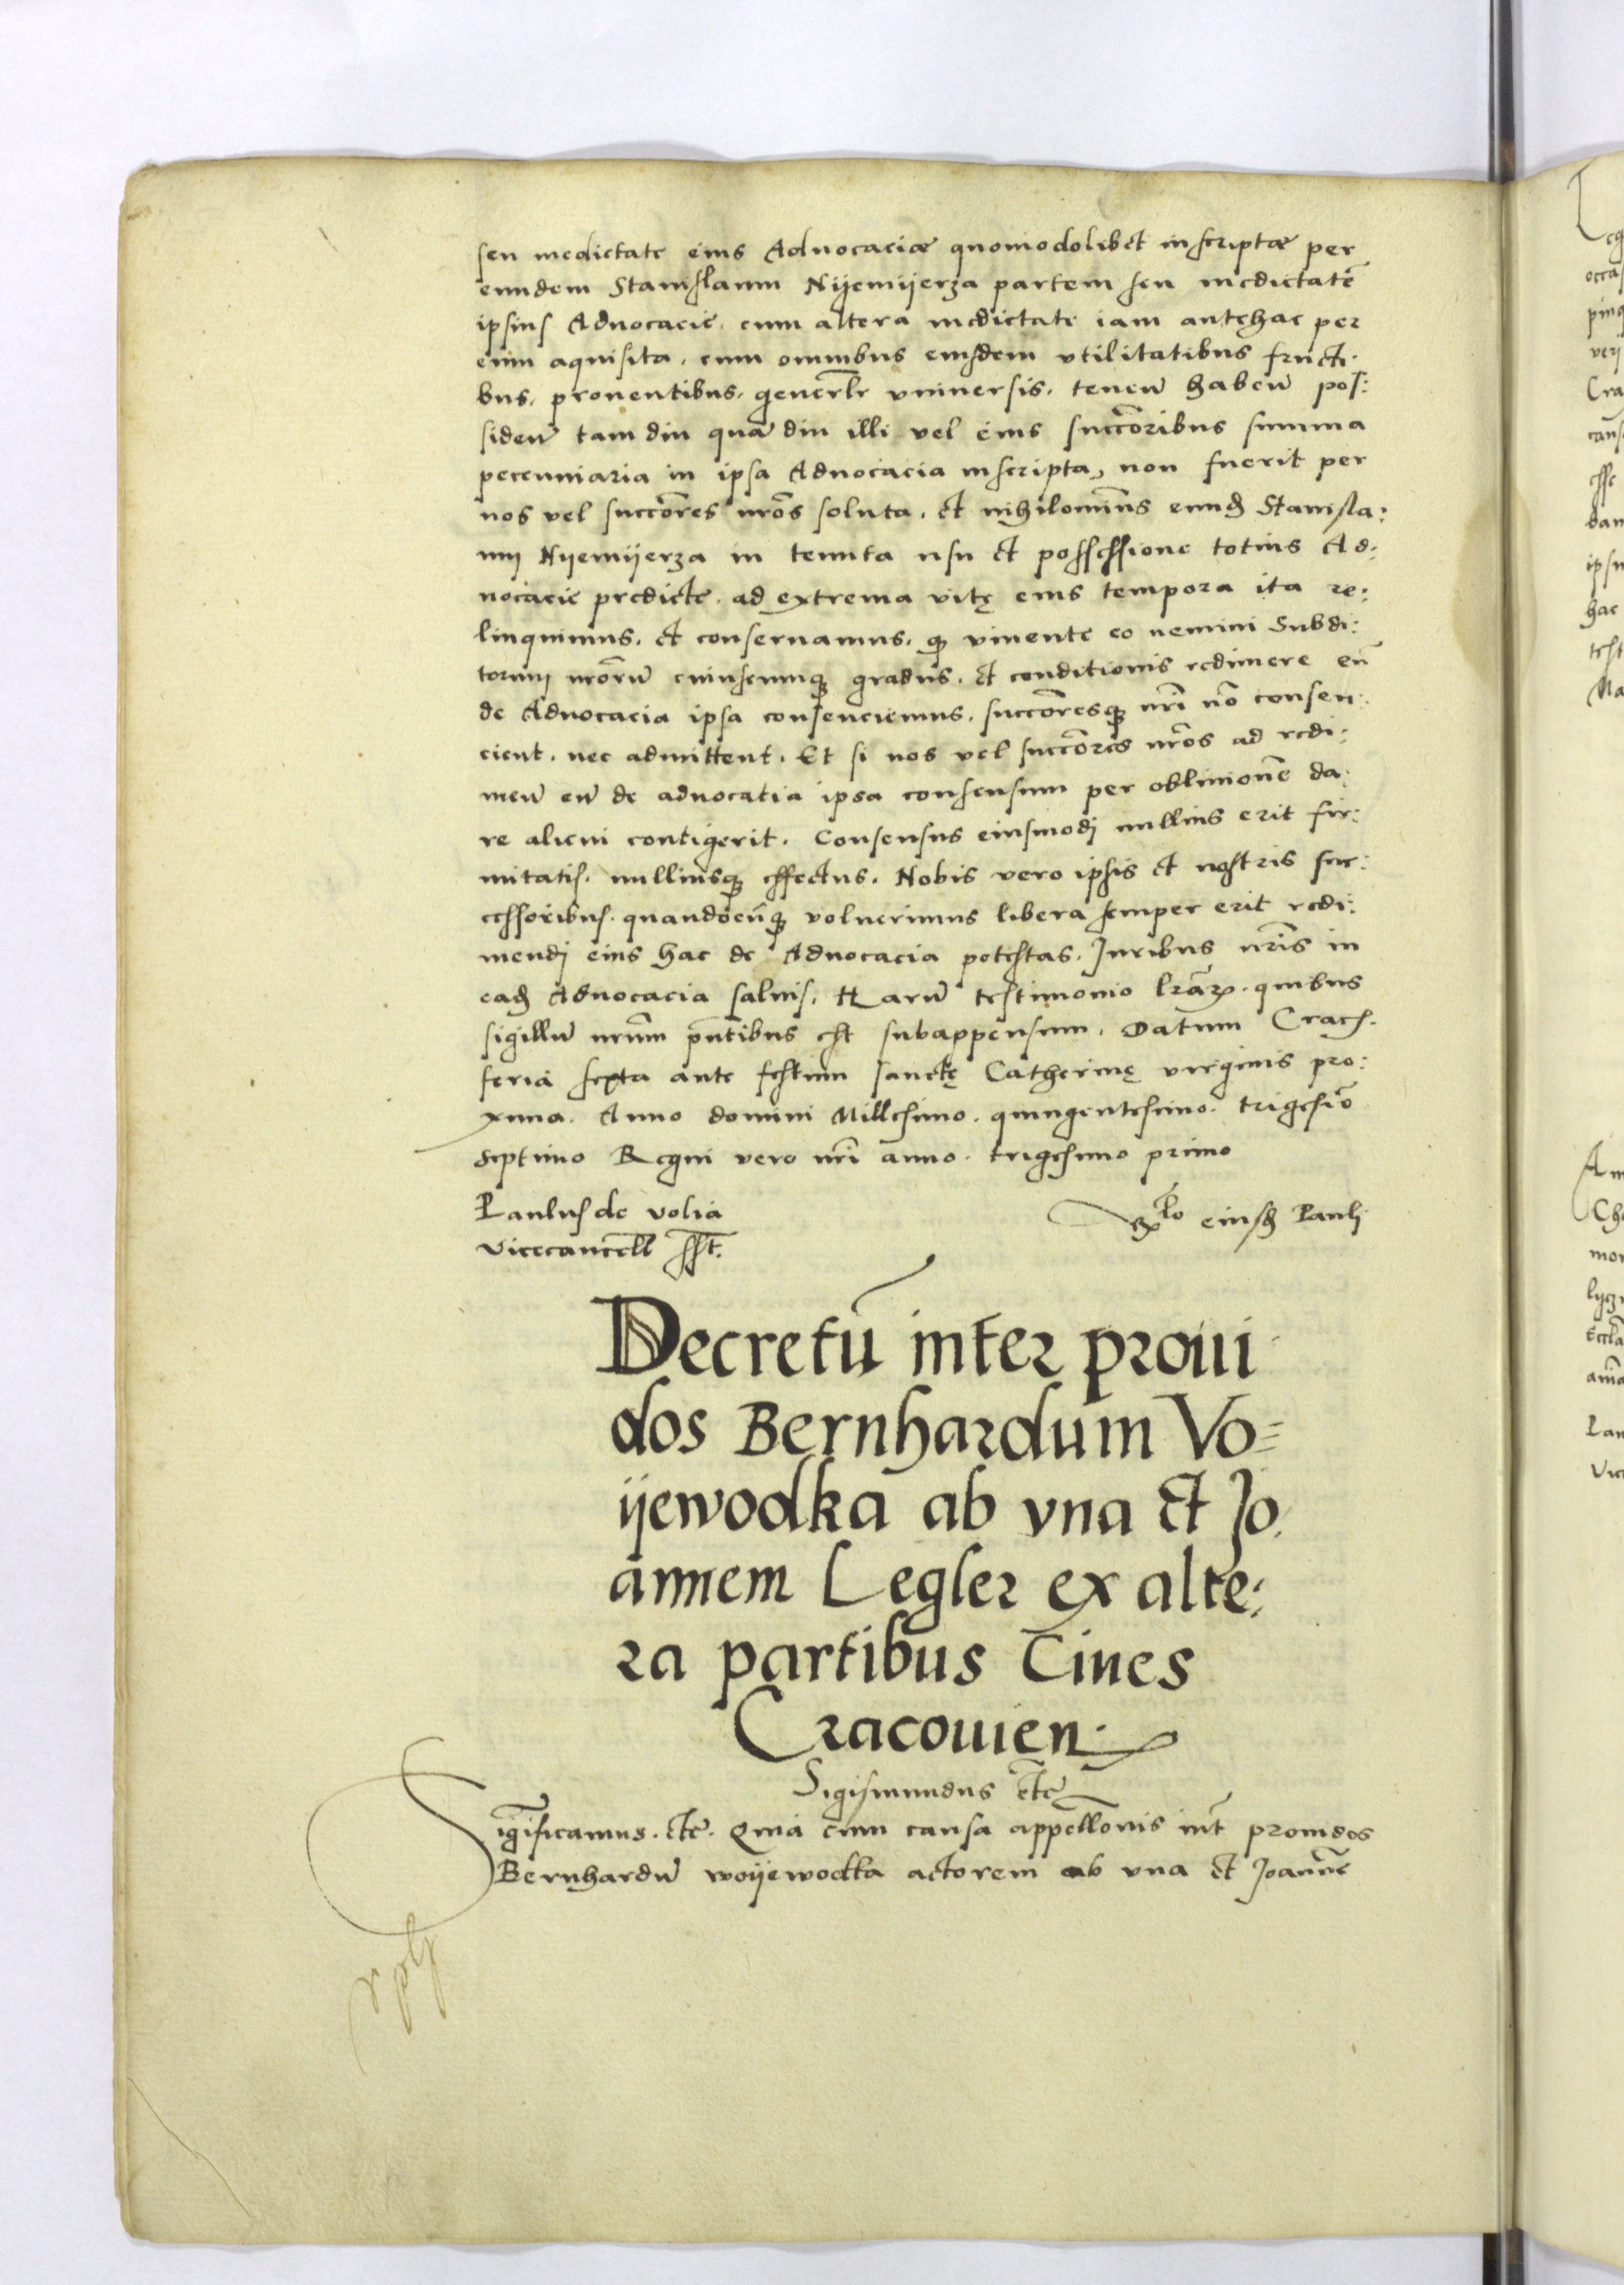 seu medietate eius Aduocaciae quomodolibet inscriptae per
eundem Stanislaum Nyemyerza partem seu medietatē
ipsius Aduocacie. cum altera medietate iam antehac per
eum aquisita. cum omnibus eiusdem vtilitatibus fructi.
bus. prouentibus. gener̄lr vniuersis. teneñ habeñ pos:
sideñ tam diu quā diu illi vel eius succ̄oribus summa
pecunniaria in ipsa Aduocacia inscripta, non fuerit per
nos vel succ̄ores nr̄os soluta. et nihilomin̄us eund̄ Stanisla:
um Nyemyerza in tenuta usu et possessione totius Ad:
uocacie predicte. ad extrema vitę eius tempora ita re:
linquimus. et conseruamus. qꝫ viuente eo nemini Subdi:
torum nr̄orū cuiuscumqꝫ gradus. et conditionis redimere eū
de Aduocacia ipsa consenciemus. succ̄oresqꝫ nr̄i nō consen:
cient. nec admittent. Et si nos vel succ̄ores nr̄os ad redi:
meñ eū de aduocatia ipsa consensum per obliuionē da:
re alicui contigerit. Consensus eiusmodj nullius erit fir:
mitatis. nulliusqꝫ effectus. Nobis vero ipsis et nostris suc:
cessoribus. quandocūqꝫ voluerimus libera semper erit redi:
mendj eius hac de Aduocacia potestas. Juribus nr̄is in
ead̄ Aduocacia saluis. Harū testimonio lr̄aꝝ. quibus
sigillū nr̄um pn̄tibus est subappensum. Datum Crac̄.
feria sexta ante festum sanctę Catherinę virginis pro:
xima. Anno domini Millesimo. quingentesimo. trigesīo
septimo Regni vero nr̄i anno. trigesimo primo
Paulus de volia
vicecancell̄ sst̄.
Rlo eiusd̄ Pauli
Decretū inter proui
dos Bernhardum Vo=
yewodka ab vna et Jo.
annem Legler ex alte:
ra partibus Ciues
Cracouien.
Sigismundus etc̄
Sig̅ificamus. etc̄. Quia cum causa appell̄onis int̄ prouidos
Bernhardū woyewodka actorem ab vna et Joannē